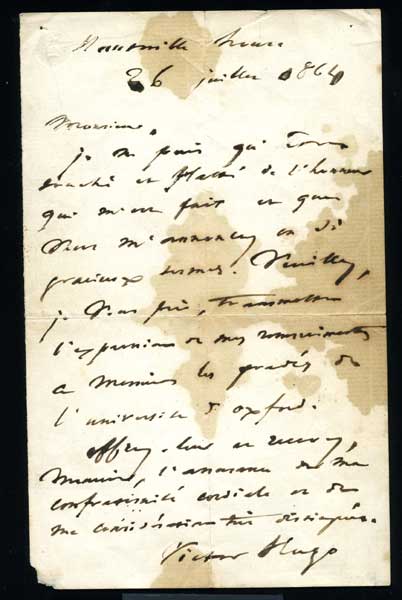 Hauteville house
26 juillet 1864
Monsieur,
je ne puis qu'être
touché et flatté de l'honneur
qui m'est fait et que
vous m'annoncez en si
gracieux termes. Veuillez,
je vous prie, transmettre
l'expression de mes remerciements
à Messieurs les gradués de
l'université d'oxford.
offrez-leur et recevez,
Monsieur, l'assurance de ma
confraternité cordiale et de
ma considération très distinguée.
Victor Hugo